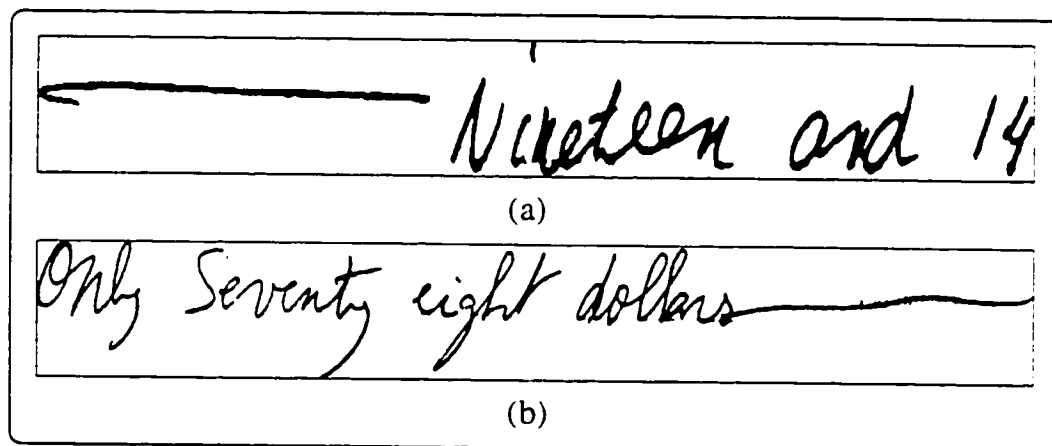 Nineteen and 14
(a)
Only Seventy eight dollars
(b)